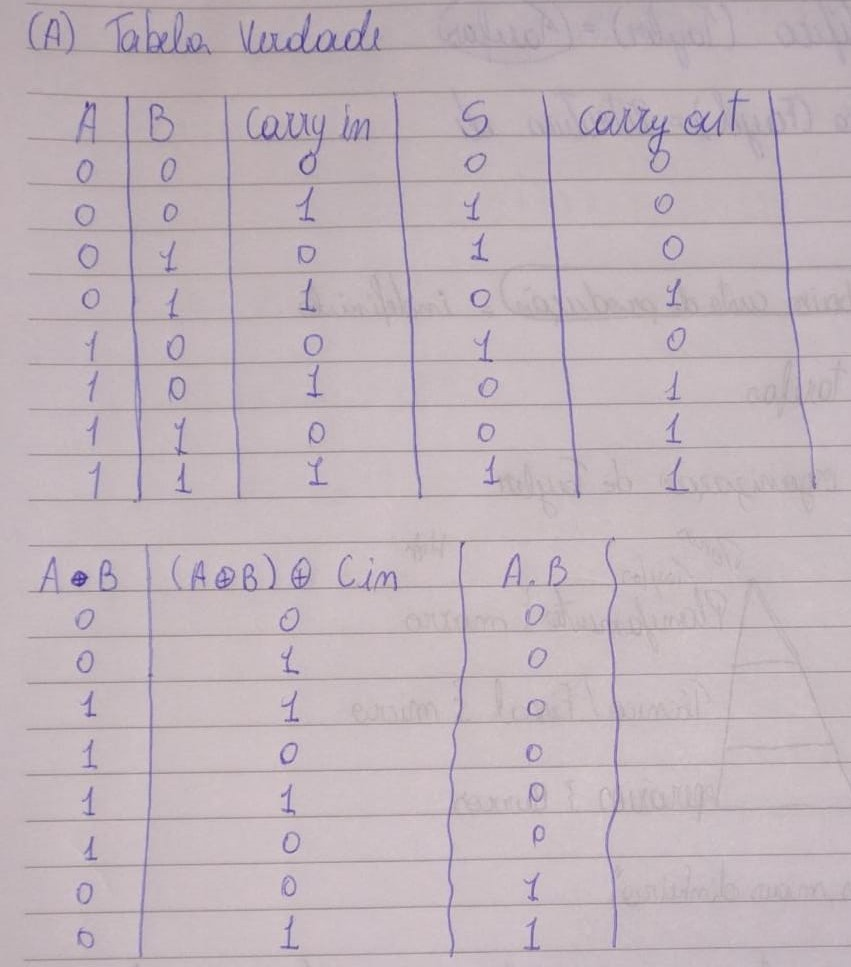 (A) Tabela Verdade
A B Carry in S Carry out
0 0 0 0 0
0 0 1 1 0
0 1 0 1 0
0 1 1 0 1
1 0 0 1 0
1 0 1 0 1
1 1 0 0 1
1 1 1 1 1
A⊕B (A⊕B) ⊕ Cin A.B
0 0 0
0 1 0
1 1 0
1 0 0
1 1 0
1 0 0
0 0 1
0 1 1